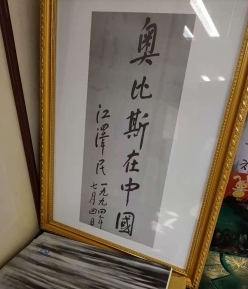 奧比斯在中國
江澤民
一九九四年
七月四日